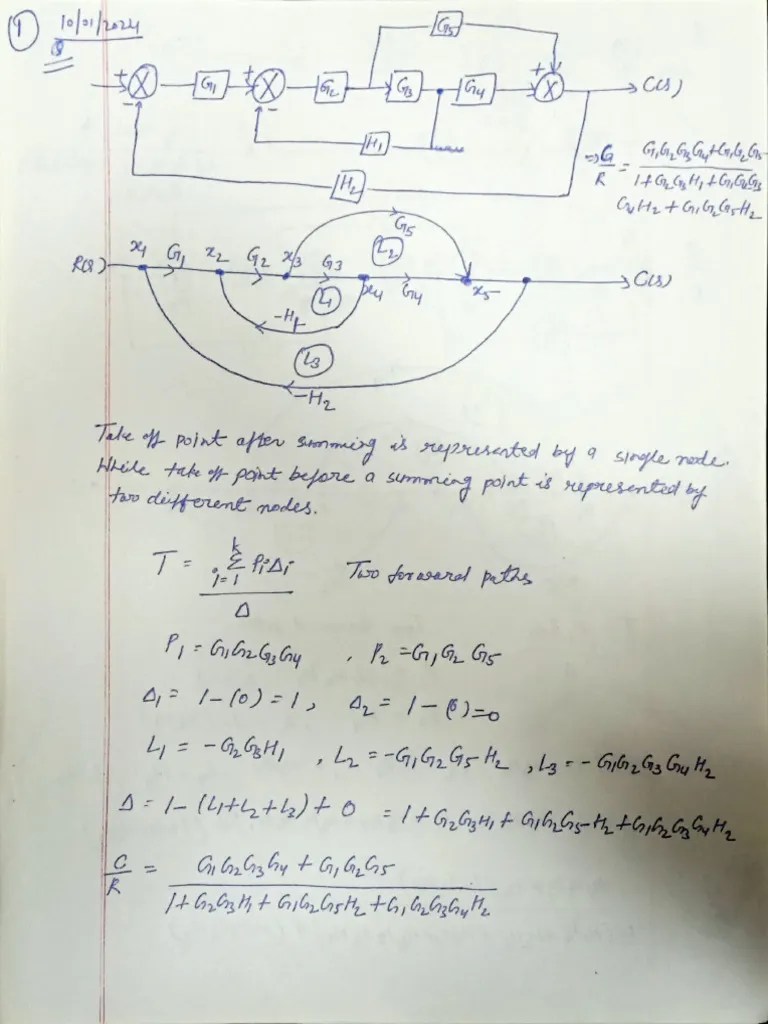 ①
10/01/2024
Q
G5
+
+ G1 + G2 G3 G4 C(S)
- -
H1
H2
=> G/R = (G1G2G3G4+G1G2G5) / (1+G2G3H1+G1G2G3
G4H2 + G1G2G5H2)
G5
R(S) x1 G1 x2 G2 x3 G3 x4 G4 x5 C(S)
L2
L1
-H1
L3
-H2
Take off point after summing is represented by a single node.
While take off point before a summing point is represented by
two different nodes.
T = Σ(i=1 to k) PiΔi / Δ Two forward paths
P1 = G1G2G3G4 , P2 = G1G2 G5
Δ1 = 1-(0) = 1, Δ2 = 1-(0)=0
L1 = -G2G3H1 , L2 = -G1G2G5 H2 , L3 = - G1G2G3 G4 H2
Δ = 1-(L1+L2+L3)+ 0 = 1+G2G3H1 + G1G2G5H2+G1G2G3G4H2
C/R = (G1G2G3G4 + G1G2G5) / (1+G2G3H1+G1G2G5H2+G1G2G3G4H2)